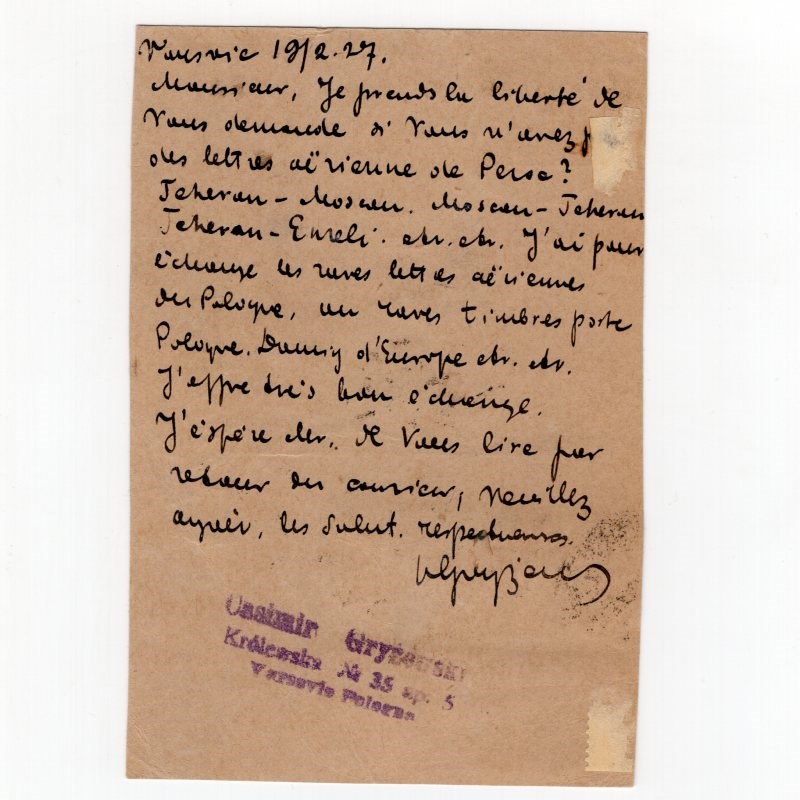 Varsovie 19/2.27.
Monsieur, Je prends la liberté de
Vous demande si Vous n'avez
des lettres aëriennes de Perse?
Teheran - Moscou. Moscou - Teheran
Teheran - Enzeli. etr. etr. J'ai pour
échange les rares lettres aëriennes
du Pologne, au rares timbres poste
Pologne. Danzig d'Europe etr. etr.
J'offre très bon échange.
J'éspére Mr. de Vous lire par
retour du courrier, Veuillez
agréér, les Salut. respectueuses.
Casimir Gryżewski
Królewska № 35 ap. 5
Varsovie Pologne